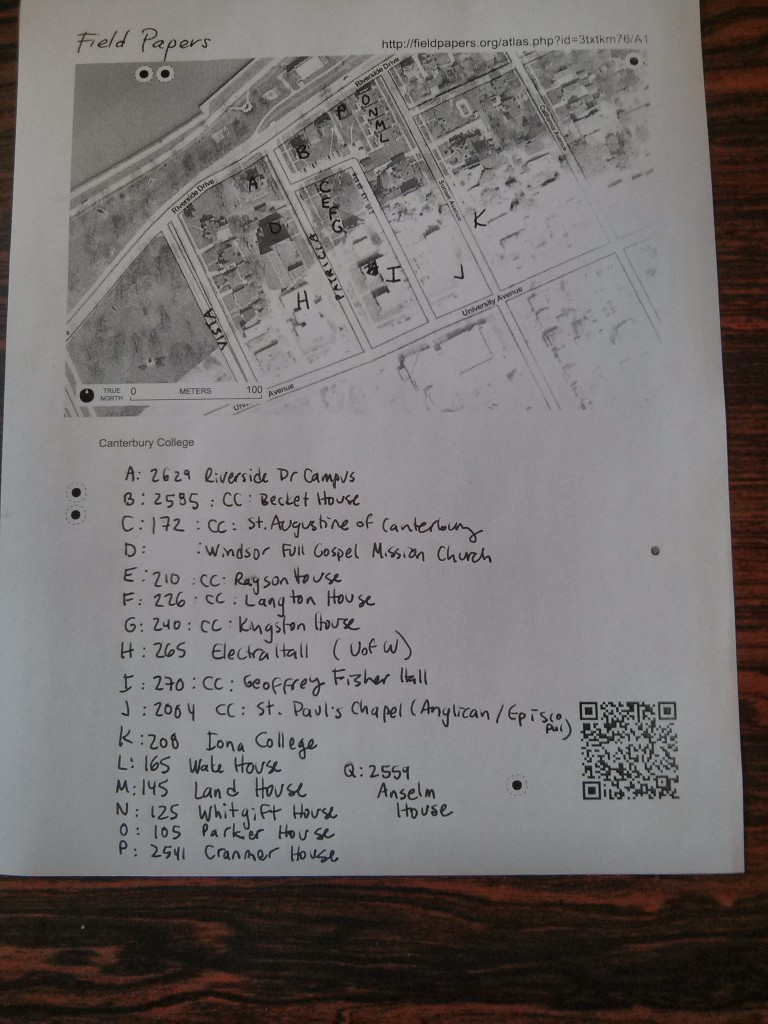 Field Papers
http://fieldpapers.org/atlas.php?id=3txtkm76/A1
Riverside Drive
P
O
N
M
L
B
California Avenue
A
C
E
F
G
Riverside Drive
Sunset Avenue
K
D
PATRICIA
I
J
H
University Avenue
VISTA
TRUE NORTH 0 METERS 100
Avenue
Canterbury College
A: 2629 Riverside Dr Campus
B: 2585 : CC: Becket House
C: 172 : CC: St. Augustine of Canterbury
D: : Windsor Full Gospel Mission Church
E: 210 : CC: Rayson House
F: 226 : CC: Langton House
G: 240 : CC: Kingston House
H: 265 Electra Hall (U of W)
I: 270 : CC: Geoffrey Fisher Hall
J: 2004 CC: St. Paul's Chapel (Anglican/Episcopal)
K: 208 Iona College
L: 165 Wake House
Q: 2559
M: 145 Land House
Anselm
N: 125 Whitgift House
House
O: 105 Parker House
P: 2541 Cranmer House